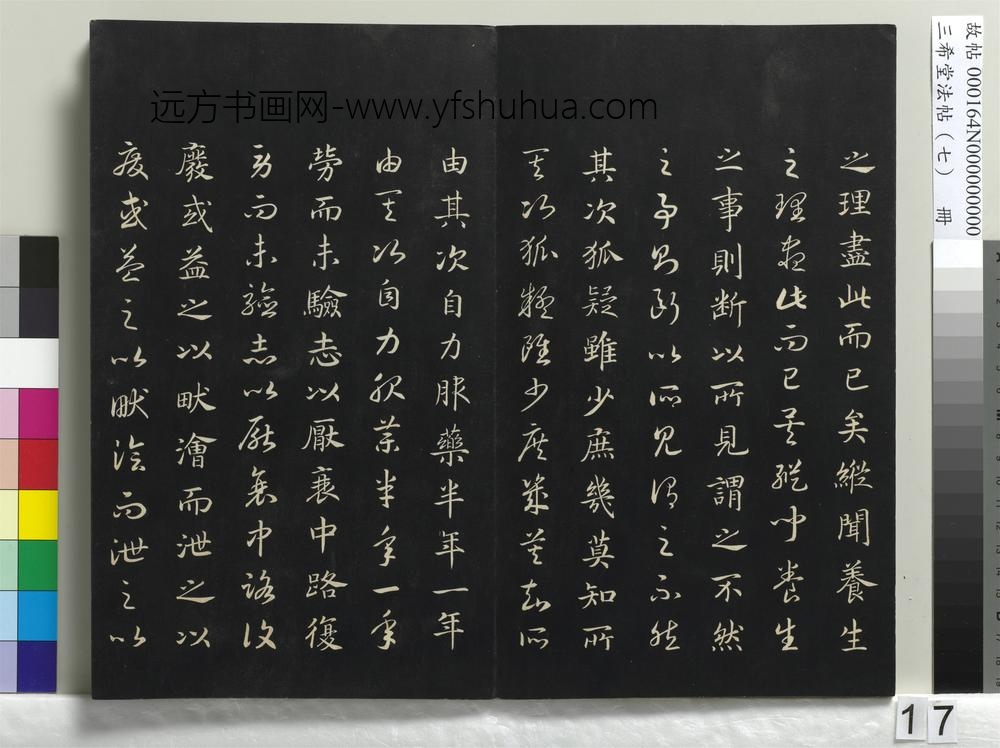 远方书画网-www.yfshuhua.com
之理盡此而已矣縱聞養生
之理盡此而已矣縱聞養生
之事則断以所見謂之不然
之事則断以所見謂之不然
其次狐疑雖少庶幾莫知所
其次狐疑雖少庶幾莫知所
由其次自力服藥半年一年
由其次自力服藥半年一年
勞而未驗志以厭衰中路復
勞而未驗志以厭衰中路復
廢或益之以畎澮而泄之以
廢或益之以畎澮而泄之以
故帖 000164N000000000
三希堂法帖(七) 冊
17